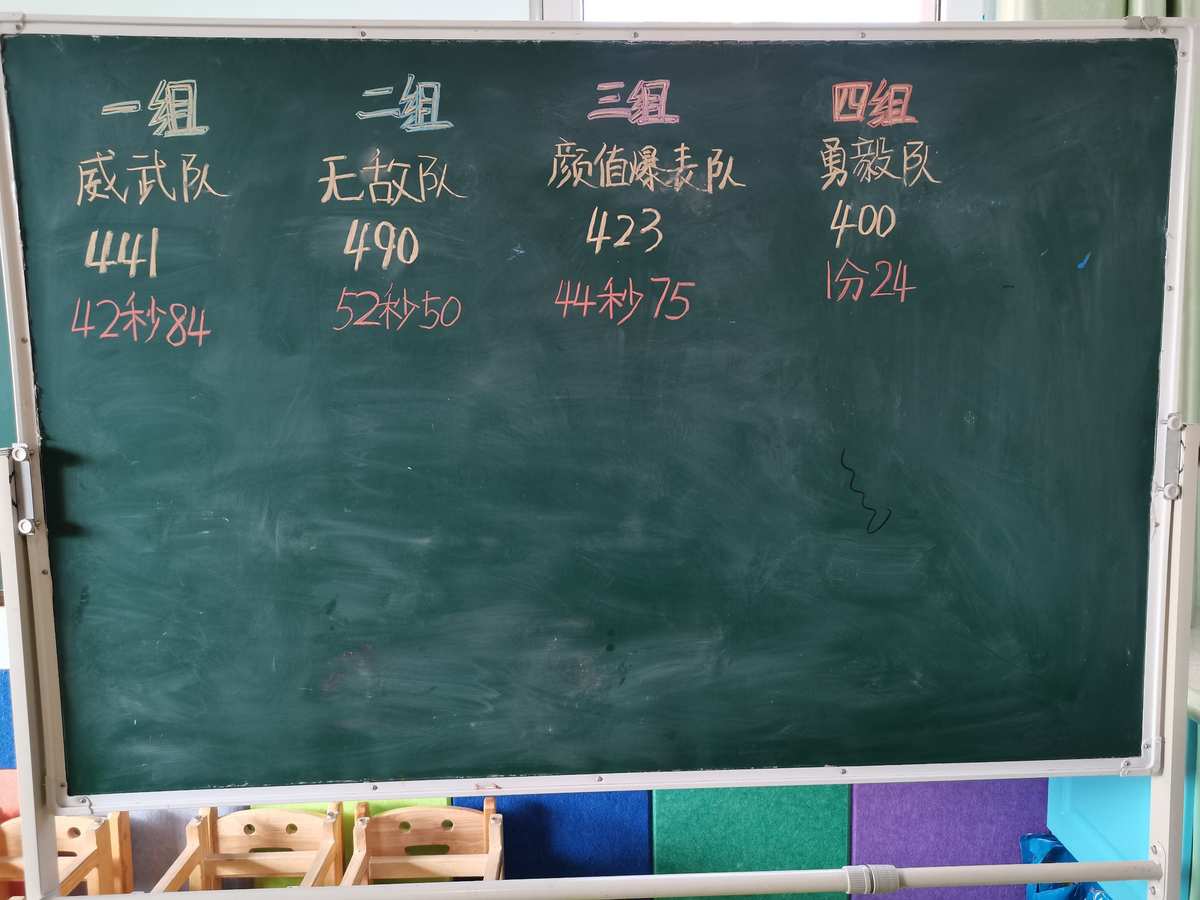 一组 二组 三组 四组
威武队 无敌队 颜值爆表队 勇毅队
441 490 423 400
42秒84 52秒50 44秒75 1分24